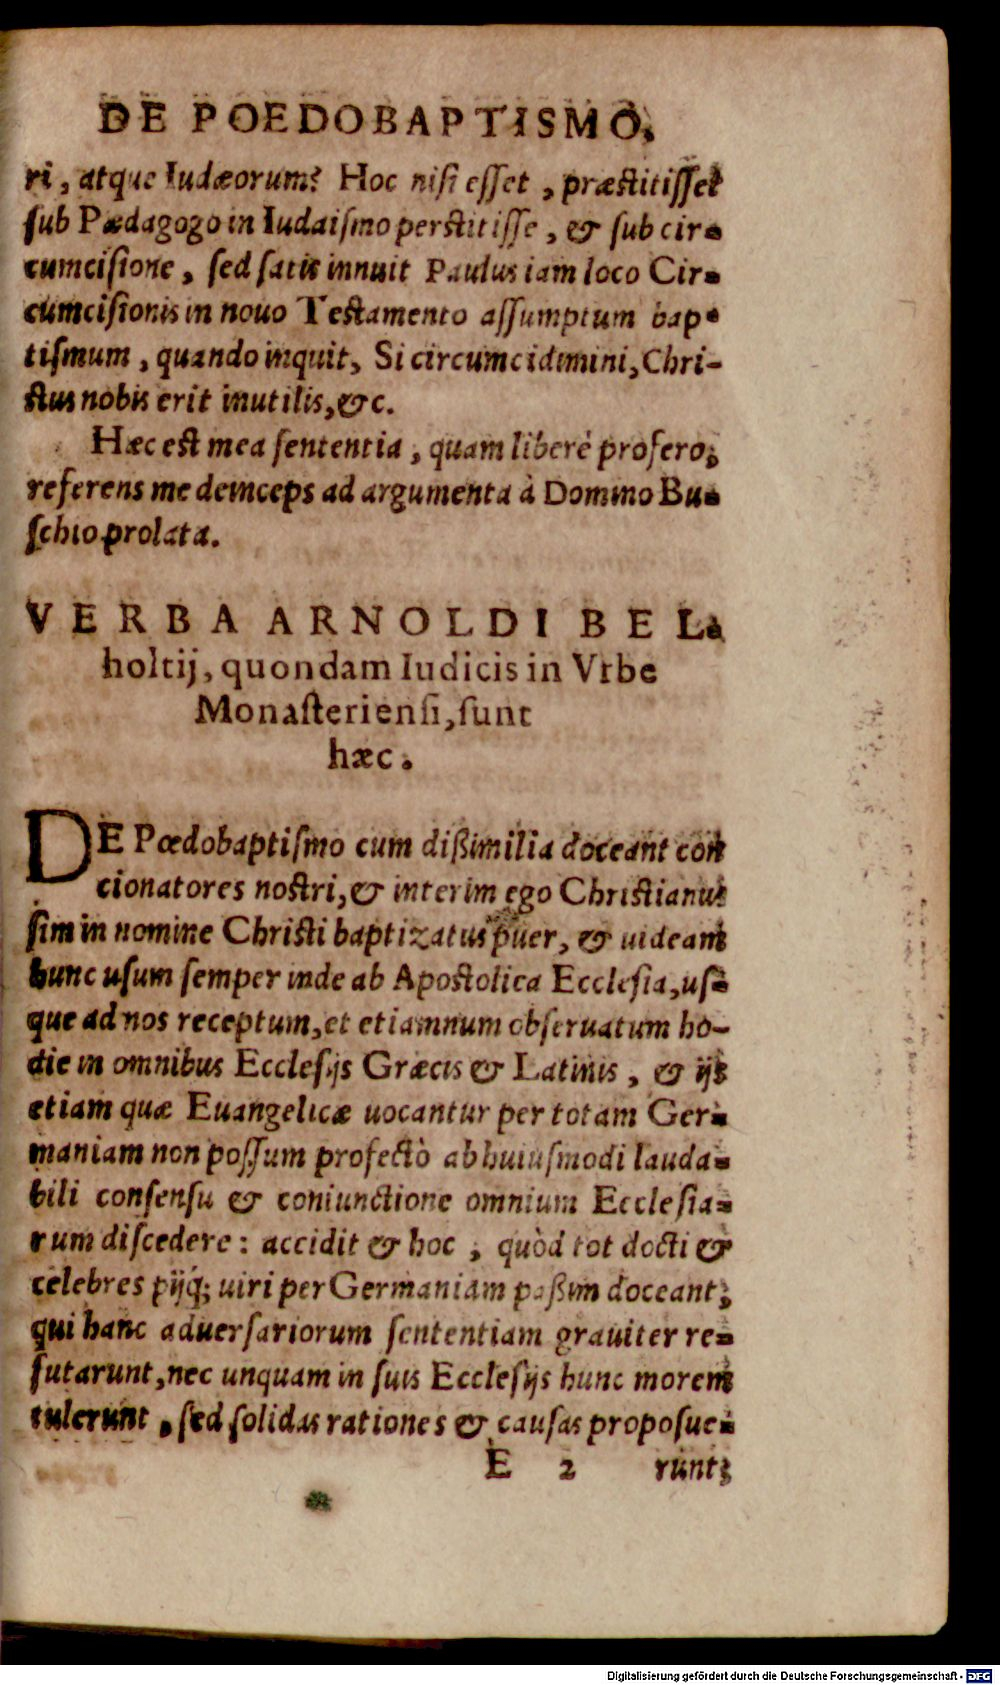 DE POEDOBAPTISMO,
ri, atque Iudæorum? Hoc nisi esset, præstitisset
sub Pædagogo in Iudaismo perstitisse, & sub cir-
cumcisione, sed satis innuit Paulus iam loco Cir-
cumcisionis in nouo Testamento assumptum bap-
tismum, quando inquit, Si circumcidimini, Chri-
stus nobis erit inutilis, &c.
Hæc est mea sententia, quam liberè profero,
referens me deinceps ad argumenta à Domino Bu-
schio prolata.
VERBA ARNOLDI BEL-
holtij, quondam Iudicis in Vrbe
Monasteriensi, sunt
hæc.
DE Pœdobaptismo cum dißimilia doceant con
cionatores nostri, & interim ego Christianus
sim in nomine Christi baptizatus puer, & uideam
hunc usum semper inde ab Apostolica Ecclesia, us-
que ad nos receptum, et etiamnum obseruatum ho-
die in omnibus Ecclesijs Græcis & Latinis, & ijs
etiam quæ Euangelicæ uocantur per totam Ger-
maniam non possum profectò ab huiusmodi lauda-
bili consensu & coniunctione omnium Ecclesia-
rum discedere: accidit & hoc, quòd tot docti &
celebres pijq; uiri per Germaniam paßim doceant,
qui hanc aduersariorum sententiam grauiter re-
futarunt, nec unquam in suis Ecclesijs hunc morem
tulerunt, sed solidas rationes & causas proposue-
E 2 runt;
Digitalisierung gefördert durch die Deutsche Forschungsgemeinschaft - DFG